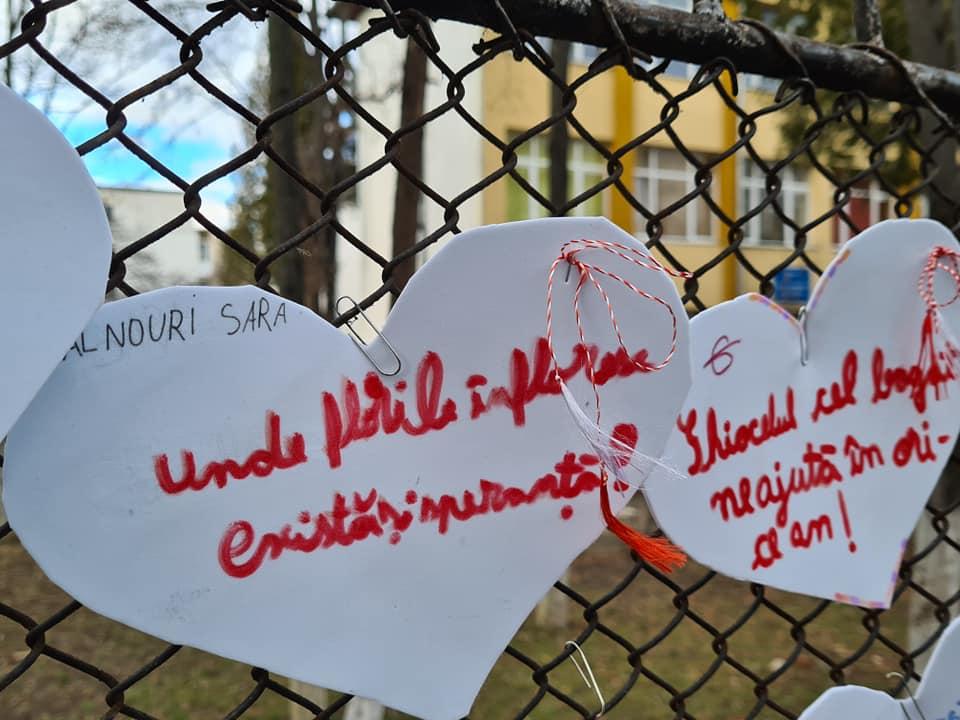 AL NOURI SARA
Unde florile înfloresc
Există și speranță!
6
Ghiocelul cel bogat
ne ajută în ori-
ce an!